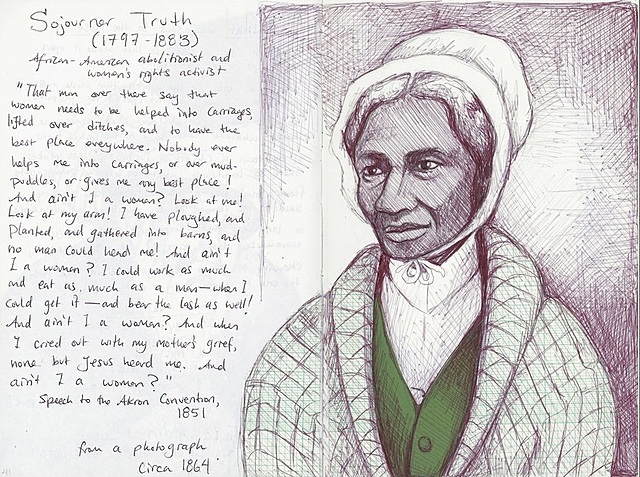 Sojourner Truth
(1797-1883)
African-American abolitionist and
women's rights activist
"That man over there say that
women needs to be helped into carriages,
lifted over ditches, and to have the
best place everywhere. Nobody ever
helps me into carringes, or over mud-
puddles, or gives me any best place!
And ain't I a woman? Look at me!
Look at my arm! I have ploughed, and
planted, and gathered into barns, and
no man could head me! And ain't
I a woman? I could work as much
and eat as much as a man—when I
could get it—and bear the lash as well!
And ain't I a woman? And when
I cried out with my mother's grief,
none but Jesus heard me. And
ain't I a woman?"
Speech to the Akron Convention,
1851
from a photograph
circa 1864